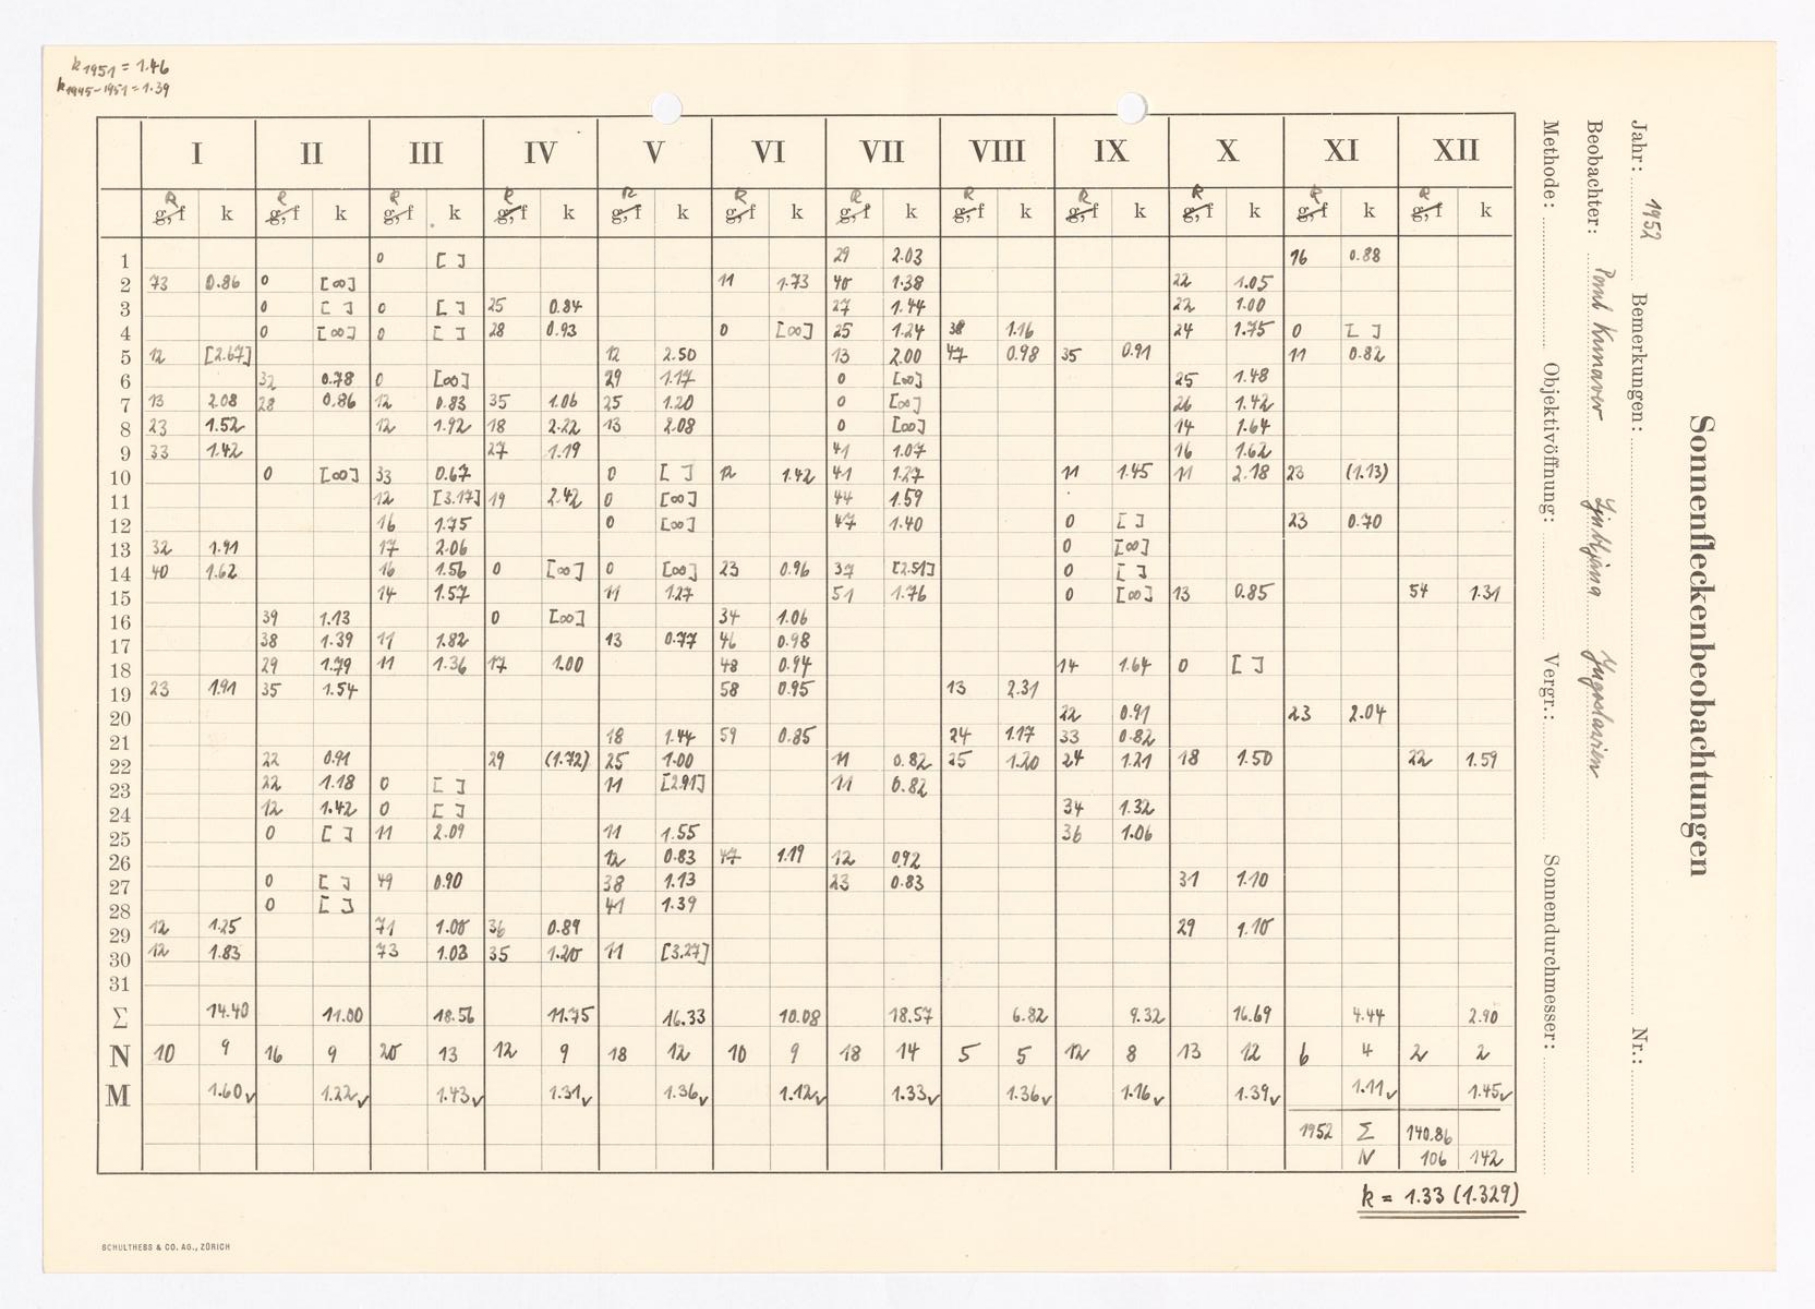 k 1951 = 1.46
k 1945-1951 = 1.39
Sonnenfleckenbeobachtungen
Jahr: 1952 Bemerkungen: Nr.:
Beobachter: Ljubljana Jugoslavien
Methode: Objektivöffnung: Vergr.: Sonnendurchmesser:
I II III IV V VI VII VIII IX X XI XII
R R R R R R R R R R R R
g, f k g, f k g, f k g, f k g, f k g, f k g, f k g, f k g, f k g, f k g, f k g, f k
1 0 [ ] 29 2.03 16 0.88
2 73 0.86 0 [∞] 11 1.73 40 1.38 22 1.05
3 0 [ ] 0 [ ] 25 0.84 27 1.44 22 1.00
4 0 [∞] 0 [ ] 28 0.93 0 [∞] 25 1.24 38 1.16 24 1.75 0 [ ]
5 12 [2.67] 12 2.50 13 2.00 47 0.98 35 0.91 11 0.82
6 32 0.78 0 [∞] 29 1.17 0 [∞] 25 1.48
7 13 2.08 28 0.86 12 0.83 35 1.06 25 1.20 0 [∞] 26 1.42
8 23 1.52 12 1.92 18 2.22 13 2.08 0 [∞] 14 1.64
9 33 1.42 27 1.19 41 1.07 16 1.62
10 0 [∞] 33 0.67 0 [ ] 12 1.42 41 1.27 11 1.45 11 2.18 23 (1.13)
11 12 [3.17] 19 2.42 0 [∞] 44 1.59
12 16 1.75 0 [∞] 47 1.40 0 [ ] 23 0.70
13 32 1.91 17 2.06 0 [∞]
14 40 1.62 16 1.56 0 [∞] 0 [∞] 23 0.96 37 [2.51] 0 [ ]
15 14 1.57 11 1.27 51 1.76 0 [∞] 13 0.85 54 1.31
16 39 1.13 0 [∞] 34 1.06
17 38 1.39 11 1.82 13 0.77 46 0.98
18 29 1.79 11 1.36 17 1.00 48 0.94 14 1.64 0 [ ]
19 23 1.91 35 1.54 58 0.95 13 2.31
20 22 0.91 23 2.04
21 18 1.44 59 0.85 24 1.17 33 0.82
22 22 0.91 29 (1.72) 25 1.00 11 0.82 25 1.20 24 1.21 18 1.50 22 1.59
23 22 1.18 0 [ ] 11 [2.91] 11 0.82
24 12 1.42 0 [ ] 34 1.32
25 0 [ ] 11 2.09 11 1.55 36 1.06
26 12 0.83 47 1.19 12 0.92
27 0 [ ] 49 0.90 38 1.13 23 0.83 31 1.10
28 0 [ ] 41 1.39
29 12 1.25 71 1.00 36 0.89 29 1.10
30 12 1.83 73 1.03 35 1.20 11 [3.27]
31
Σ 14.40 11.00 18.56 11.75 16.33 10.08 18.57 6.82 9.32 16.69 4.44 2.90
N 10 9 16 9 20 13 12 9 18 12 10 9 18 14 5 5 12 8 13 12 6 4 2 2
M 1.60 1.22 1.43 1.31 1.36 1.12 1.33 1.36 1.16 1.39 1.11 1.45
1952 Σ 140.86
N 106 142
k = 1.33 (1.329)
SCHULTHESS & CO. AG., ZÜRICH